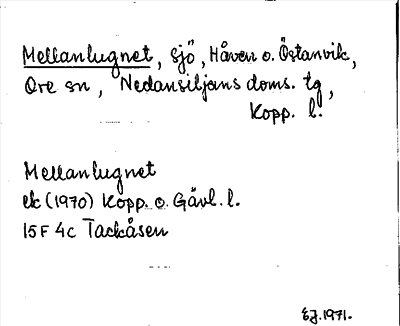 Mellanlugnet, sjö, Håven o. Östanvik,
Ore sn, Nedansiljans doms. tg,
Kopp. l.
Mellanlugnet
ek (1970) Kopp. o. Gävl. l.
15F 4c Tackåsen
EJ. 1971.